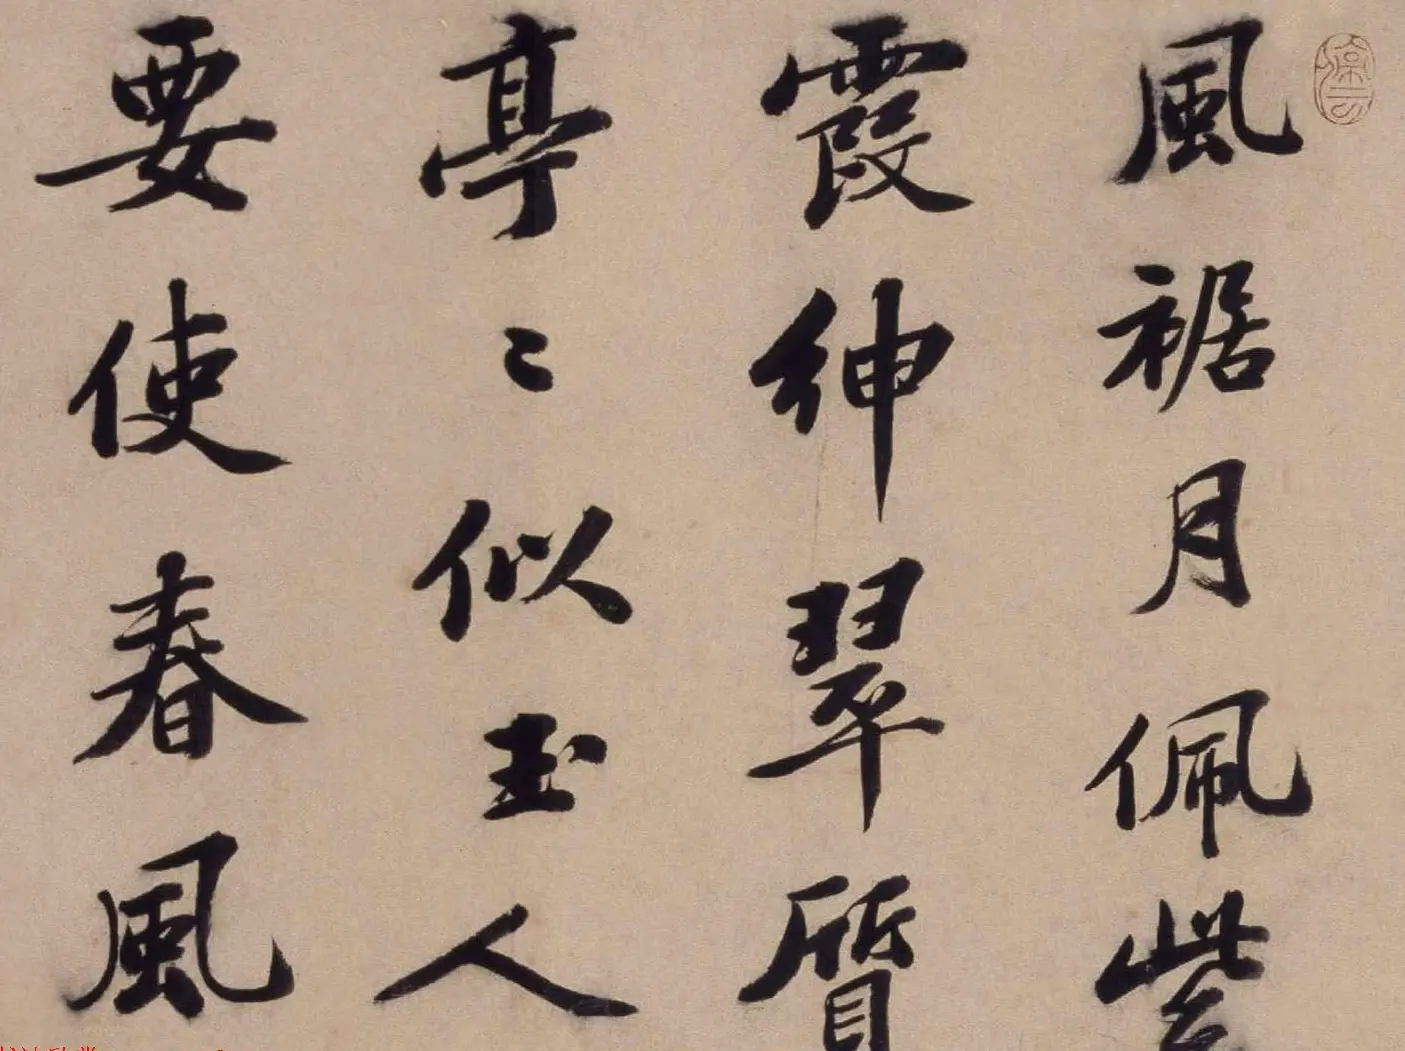 風裾月佩紫
霞紳翠質
亭〻似玉人
要使春風